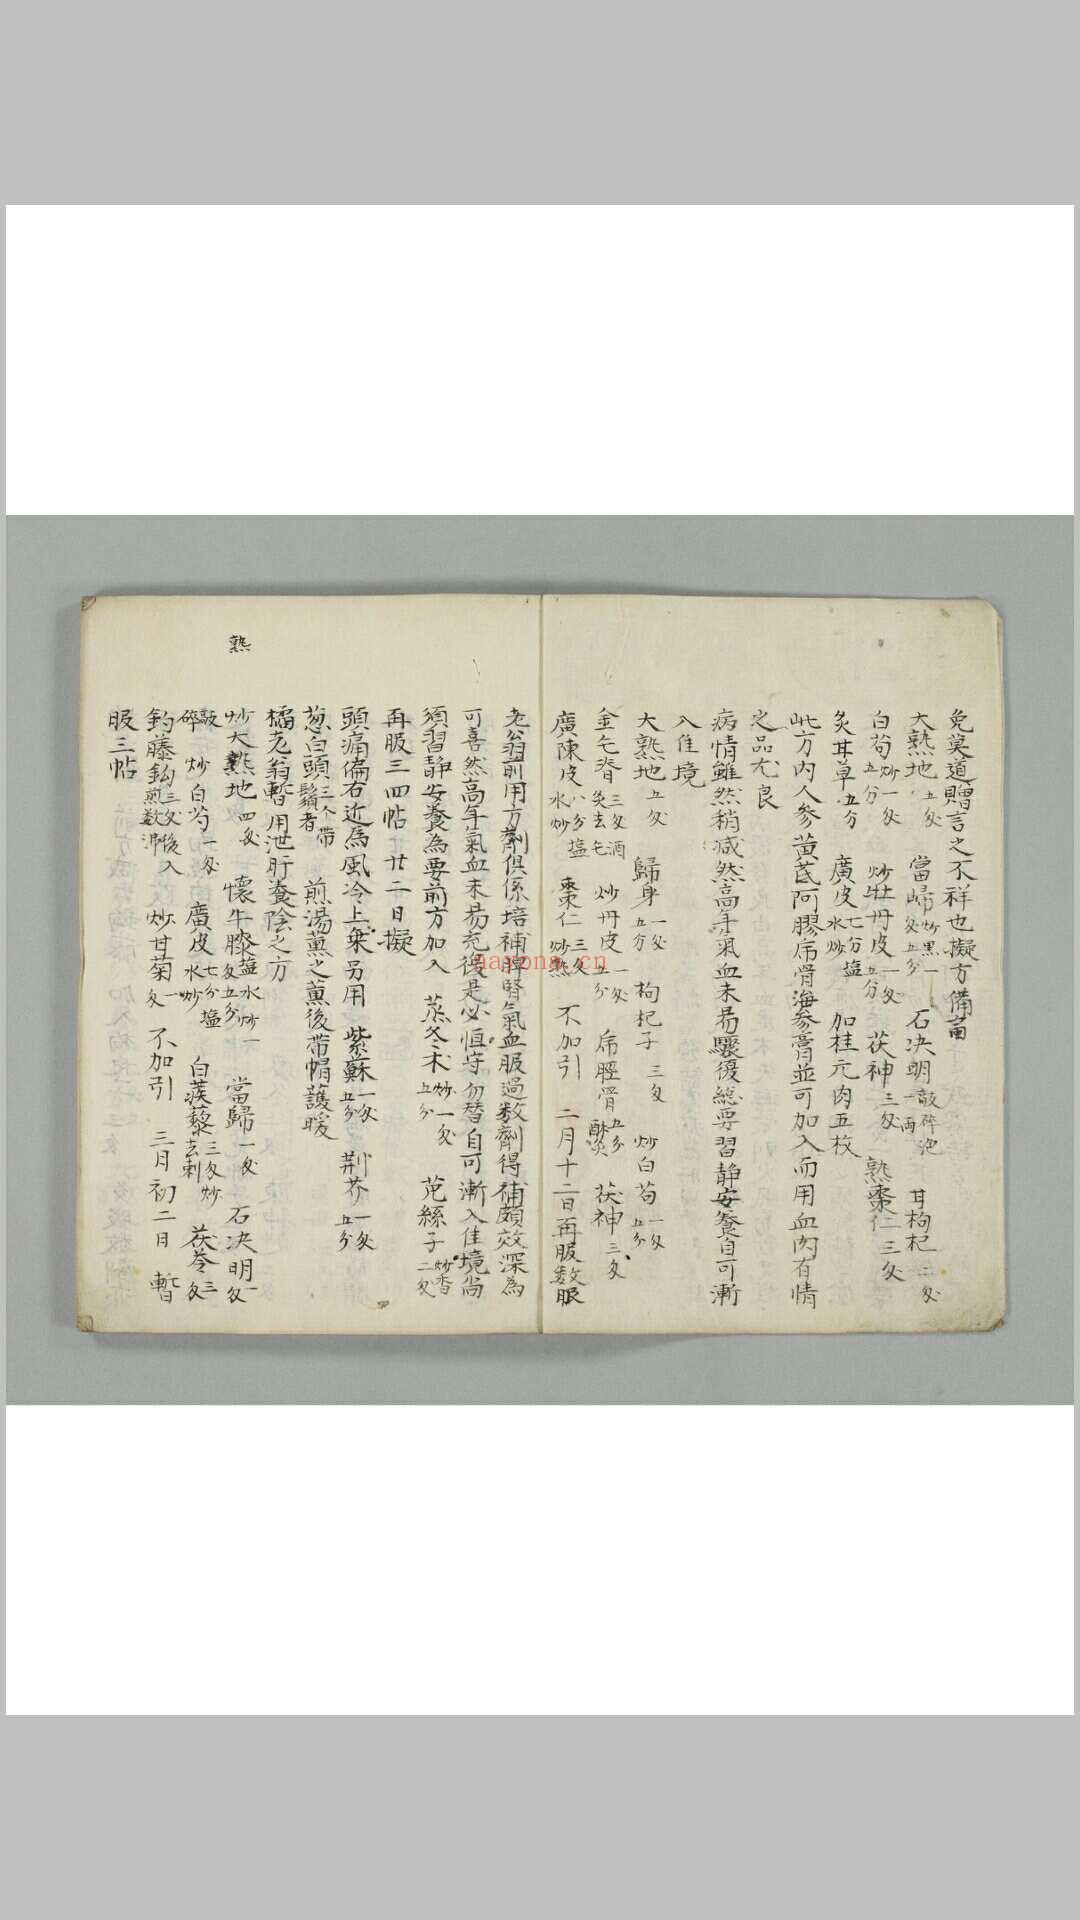 免冀道贈言之不祥也擬方備菑
大熟地五夊 當歸炒黑一夊五分 石决明敲碎泡一両 甘枸杞二夊
白芍炒一夊五分 炒牡丹皮一夊五分 茯神三夊 熟棗仁三夊
炙甘草五分 廣皮七分塩水炒 加桂元肉五枚
此方內人參黄芪阿膠虎骨海參膏並可加入而用血肉有情
之品尤良
病情雖然稍减然高年氣血未易驟復總要習静安養自可漸
入佳境
大熟地五夊 歸身一夊五分 枸杞子三夊 炒白芍一夊五分
金毛脊三夊酒炙去毛 炒丹皮一夊五分 虎脛骨五分酥炙 茯神三夊
廣陳皮八分塩水炒 棗仁三夊炒熟 不加引 二月十二日再服数服
老翁前用方劑俱係培補脾腎氣血服過数劑得補頗效深為
可喜然高年氣血未易充復是必恒守勿替自可漸入佳境尚
須習静安養為要前方加入 蒸冬术炒一夊五分 菟絲子炒香二夊
再服三四帖 廿二日擬
頭痛偏右近為風冷上乗另用 紫蘇一夊五分 荆芥一夊五分
葱白頭三个帶鬚者 煎湯薰之薰後帶帽護暖
橘老翁暫用泄肝養陰之方
炒大熟地四夊 懷牛膝塩水炒一夊五分 當歸一夊 石决明一夊
敲碎 炒白芍一夊 廣皮七分塩水炒 白蒺藜三夊炒去刺 茯苓三夊
鈎藤鈎三夊後入煎数沸 炒甘菊一夊 不加引 三月初二日 暫
服三帖
熟
nayona.cn